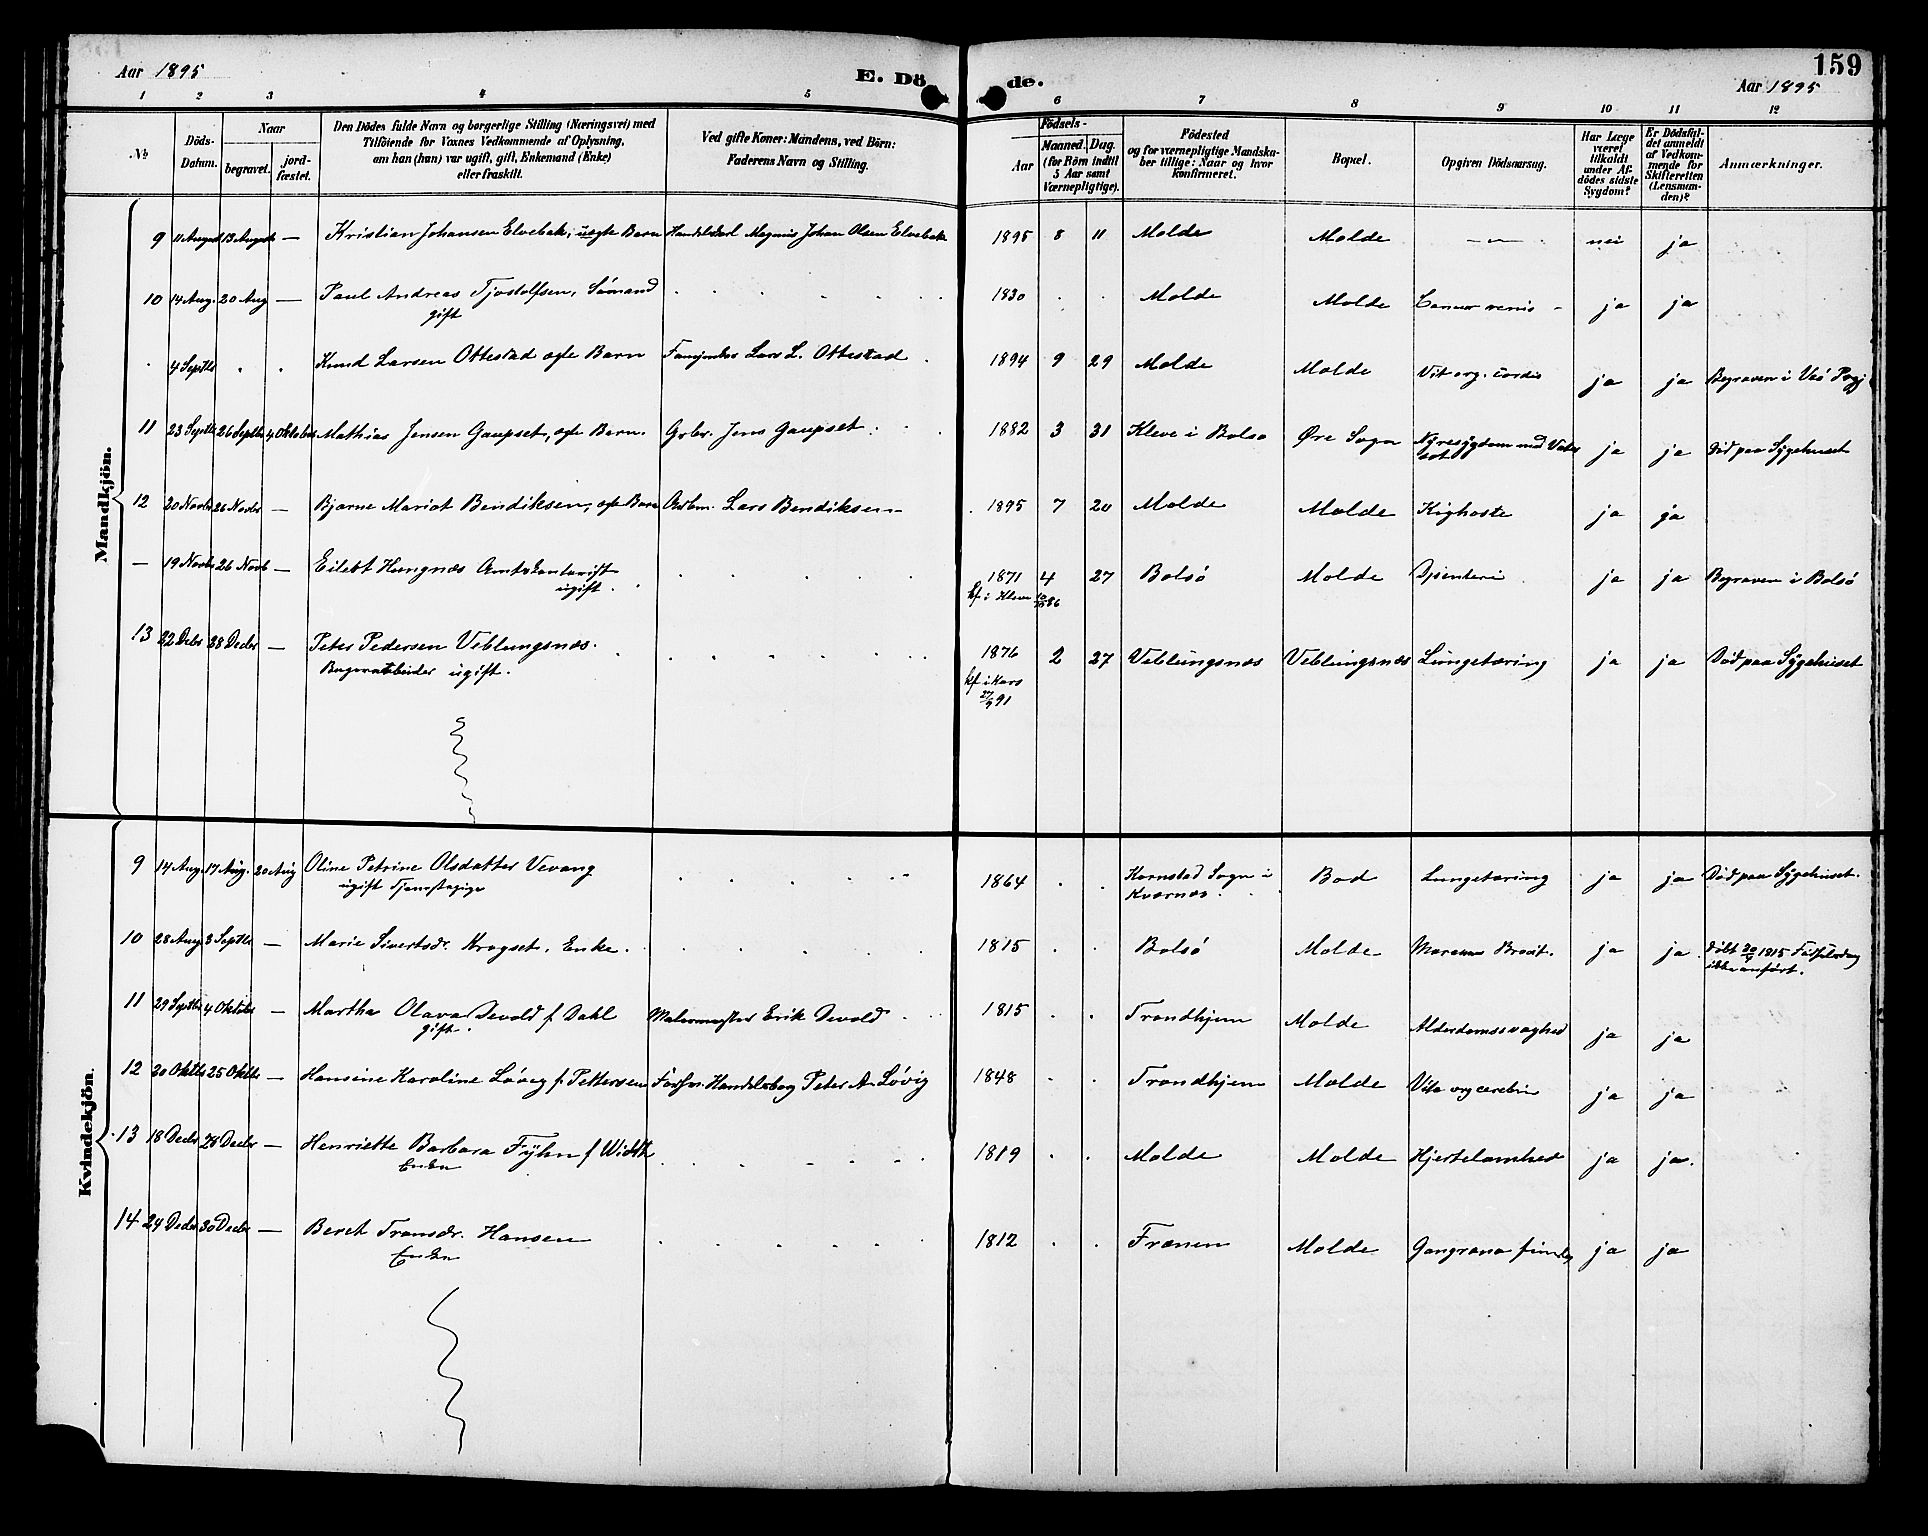 Aar 1895
E. Dö de.
159
Aar 1895
1 2 3 4 5 6 7 8 9 10 11 12
No
Döds-Datum.
Naar
begravet.
jord-fæstet.
Den Dödes fulde Navn og borgerlige Stilling (Næringsvei) med
Tilföiende for Voxnes Vedkommende af Oplysning,
om han (hun) var ugift, gift, Enkemand (Enke)
eller fraskilt.
Ved gifte Koner: Mandens, ved Börn:
Faderens Navn og Stilling.
Födsels-
Aar
Maaned. Dag.
(for Börn indtil
5 Aar samt
Værnepligtige).
Födested
og for værnepligtige Mandska-
ber tillige: Naar og hvor
konfirmeret.
Bopæl.
Opgiven Dödsaarsag.
Har Læge
været
tilkaldt
under Af-
dödes sidste
Sygdom?
Er Dödsfal-
det anmeldt
af Vedkom-
mende for
Skifteretten
(Lensman-
den)?
Anmærkninger.
Mandkjön.
9 11 August 13 August — Kristian Johansen Elvebak, uægte Barn Magnus Johan Olsen Elvebak 1895 8 11 Molde Molde — nei ja
10 14 Aug. 20 Aug — Paul Andreas Tjostolfsen, Sömand 1830 Molde Molde Cancer ja ja
gift
4 Septbr Knud Larsen Ottestad ægte Barn Lars L. Ottestad 1894 9 29 Molde Molde Vit. org. cordis ja ja Begraven i Veö Prgj
11 23 Septbr 26 Septbr 4 Oktober Mathias Jensen Gaupset, ægte Barn. Gbr. Jens Gaupset 1882 3 31 Kleve i Bolsö Öre Sogn Nyresygdom med Vater ja ja Död paa Sygehuset
sot
12 20 Novbr 26 Novbr — Bjarne Mariot Bendiksen, ægte Barn Arbm. Lars Bendiksen 1895 7 20 Molde Molde Kighoste ja ja
— 19 Novbr 26 Novb — Eilert Hungnæs 1871 4 27 Bolsö Molde Dysenteri ja ja Begraven i Bolsö
ugift.
kf i Kleve 10/10 86
13 22 Debr 28 Decbr — Peter Pedersen Veblungsnæs. 1876 2 27 Veblungsnæs Veblungsnæs Lungetæring ja ja Död paa Sygehuset
Bagerarbeider ugift.
kf i Kors
27/9 91
Kvindekjön.
9 14 Aug. 17 Aug. 20 Aug Oline Petrine Olsdatter Vevang 1864 Kornstad Sogn i Bod Lungetæring ja ja Död paa Sygehuset.
ugift Tjenestepige
Kværnæs
10 28 Aug 3 Septbr — Marie Sivertsdr. Krogset, Enke. 1815 Bolsö Molde ja ja Döbt 30/4 1815 Födselsdag
ikke anfört.
11 29 Septbr 4 Oktober — Martha Olava Devold f. Dahl Malermester Erik Devold 1815 Trondhjem Molde Alderdomssvaghed ja ja
gift.
12 20 Oktbr 25 Oktbr — Hansine Karoline Lövig f. Pettersen Forhv. Handelsborg Peter A. Lövig 1848 Trondhjem Molde Vit. org cerebri ja ja
13 18 Decbr 28 Decbr — Henriette Barbara Fÿhn f Width 1819 Molde Molde Hjertelamhed ja ja.
Enke
14 24 Decbr 30 Decbr — Beret Fransdr. Hansen 1812 Frænen Molde Gangræna ja ja
Enke